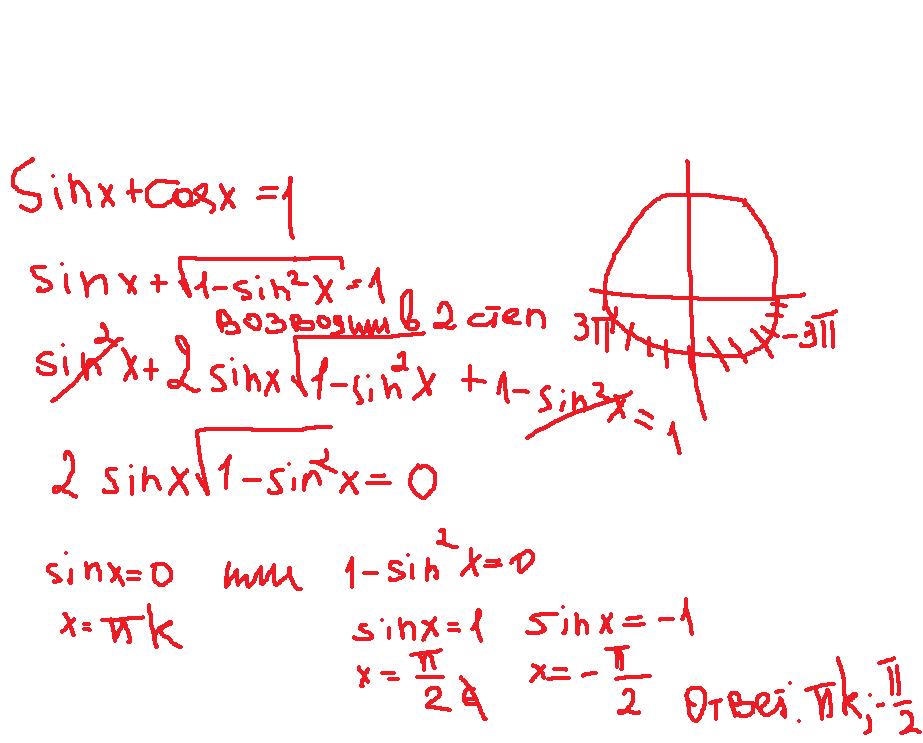 sinx+cosx=1
sinx+√(1-sin²x)=1
возводим в 2 степ
3π -3π
sin²x+2sinx√(1-sin²x)+1-sin²x=1
2 sinx√(1-sin²x)=0
sinx=0 или 1-sin²x=0
x=πk sinx=1 sinx=-1
x=π/2 x=-π/2
Ответ. πk; -π/2